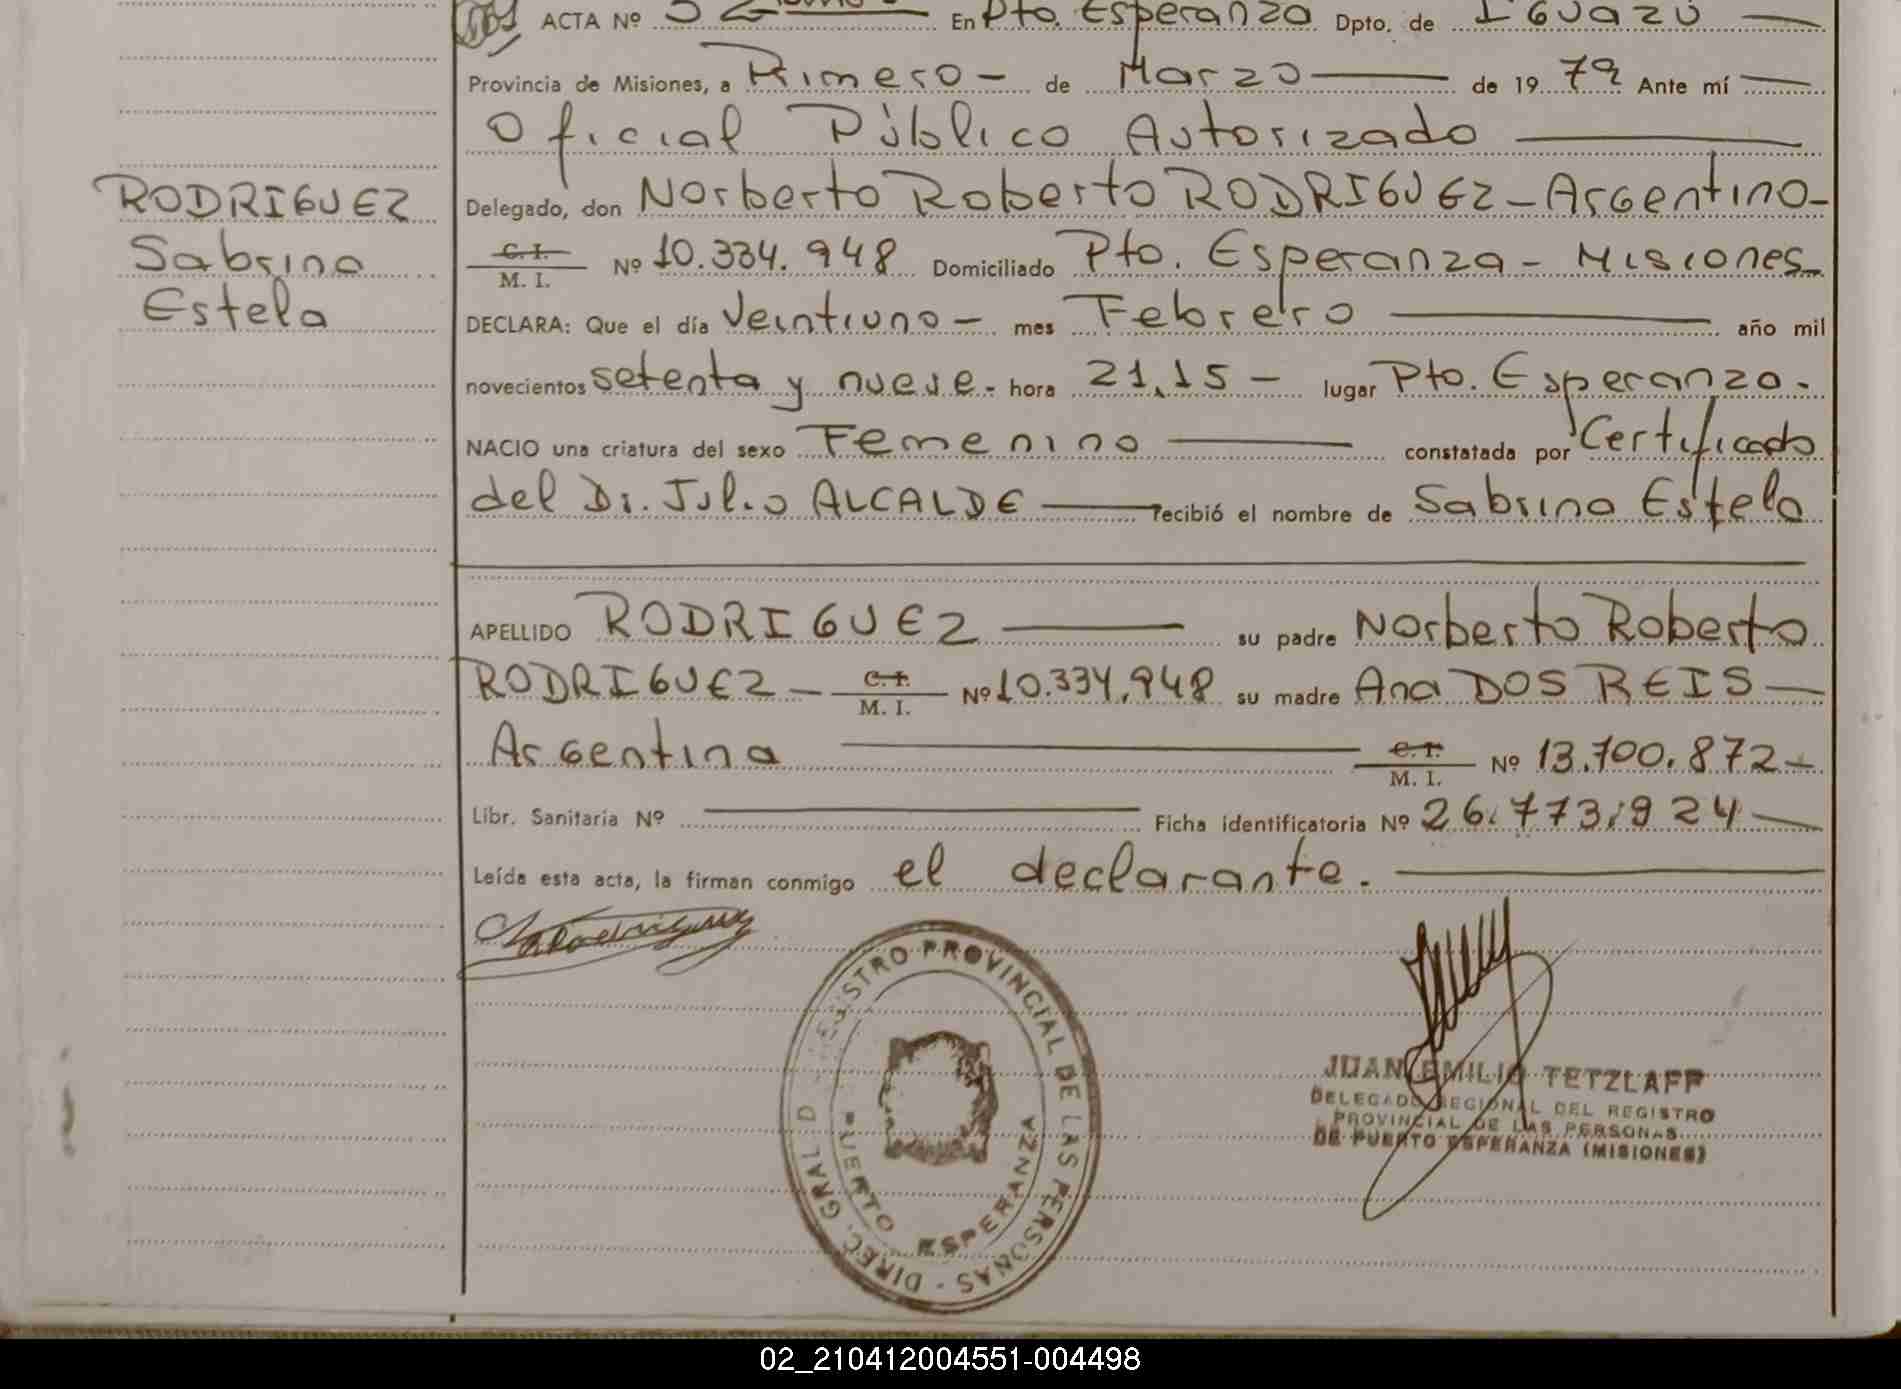 ACTA Nº 52 En Pto. Esperanza Dpto. de IGUAZU
Provincia de Misiones, a Primero - de Marzo de 19 79 Ante mí
Oficial Público Autorizado
RODRIGUEZ
Sabrina
Estela
Delegado, don Norberto Roberto RODRIGUEZ - Argentino -
C. I.
M. I. Nº 10.334.948 Domiciliado Pto. Esperanza - Misiones
DECLARA: Que el día Veintiuno - mes Febrero año mil
novecientos setenta y nueve - hora 21,15 - lugar Pto. Esperanza.
NACIO una criatura del sexo Femenino constatada por Certificado
del Dr. Julio ALCALDE recibió el nombre de Sabrina Estela
APELLIDO RODRIGUEZ su padre Norberto Roberto
RODRIGUEZ - C. I. M. I. Nº 10.334.948 su madre Ana DOS REIS
Argentina C. I. M. I. Nº 13.700.872 -
Libr. Sanitaria Nº Ficha identificatoria Nº 26.773.924
Leída esta acta, la firman conmigo el declarante.
DIREC. GRAL D REGISTRO PROVINCIAL DE LAS PERSONAS -
PUERTO ESPERANZA
JUAN EMILIO TETZLAFF
DELEGADO REGIONAL DEL REGISTRO
PROVINCIAL DE LAS PERSONAS
DE PUERTO ESPERANZA (MISIONES)
02_210412004551-004498